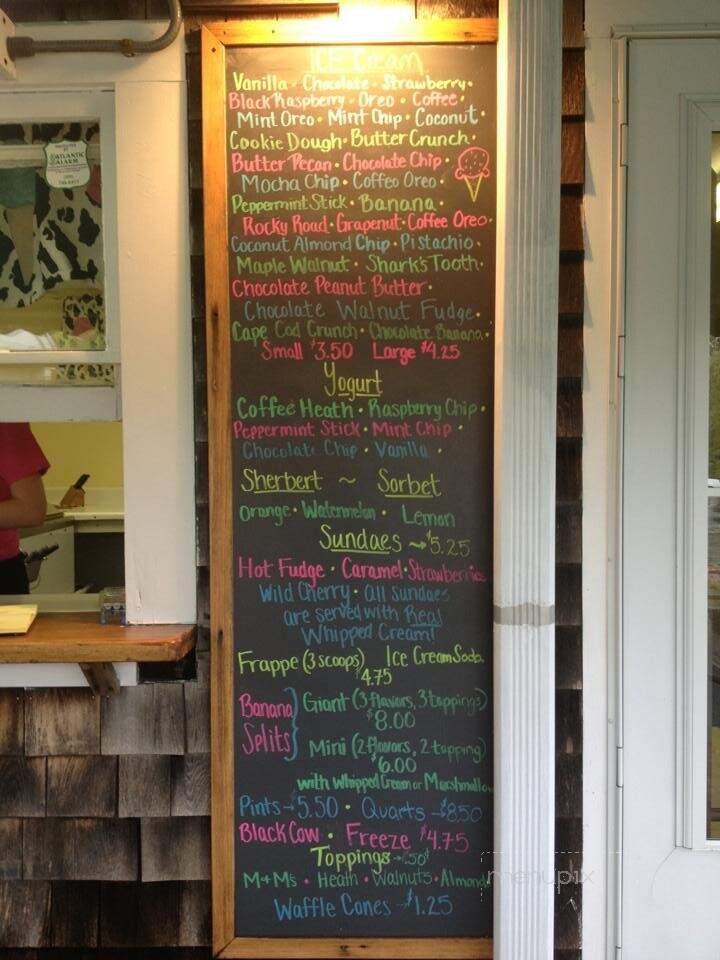 ICE Cream
Vanilla • Chocolate • Strawberry •
Black Raspberry • Oreo • Coffee •
Mint Oreo • Mint Chip • Coconut •
Cookie Dough • Butter Crunch •
Butter Pecan • Chocolate Chip •
Mocha Chip • Coffeo Oreo •
Peppermint Stick • Banana •
Rocky Road • Grapenut • Coffee Oreo •
Coconut Almond Chip • Pistachio •
Maple Walnut • Shark's Tooth •
Chocolate Peanut Butter •
Chocolate Walnut Fudge •
Cape Cod Crunch • Chocolate Banana •
Small $3.50 Large $4.25
Yogurt
Coffee Heath • Raspberry Chip •
Peppermint Stick • Mint Chip •
Chocolate Chip • Vanilla •
Sherbert ~ Sorbet
Orange • Watermelon • Lemon
Sundaes → $5.25
Hot Fudge • Caramel • Strawberries
Wild Cherry • all sundaes
are served with Real
Whipped Cream!
Frappe (3 scoops) Ice Cream Soda
$4.75
Banana Splits
Giant (3 flavors, 3 toppings)
$8.00
Mini (2 flavors, 2 topping)
$6.00
with Whipped Cream or Marshmallow
Pints → 5.50 • Quarts → $8.50
Black Cow • Freeze $4.75
Toppings → .50¢
M+Ms • Heath • Walnuts • Almond
Waffle Cones → $1.25
ATLANTIC
ALARM
menupix